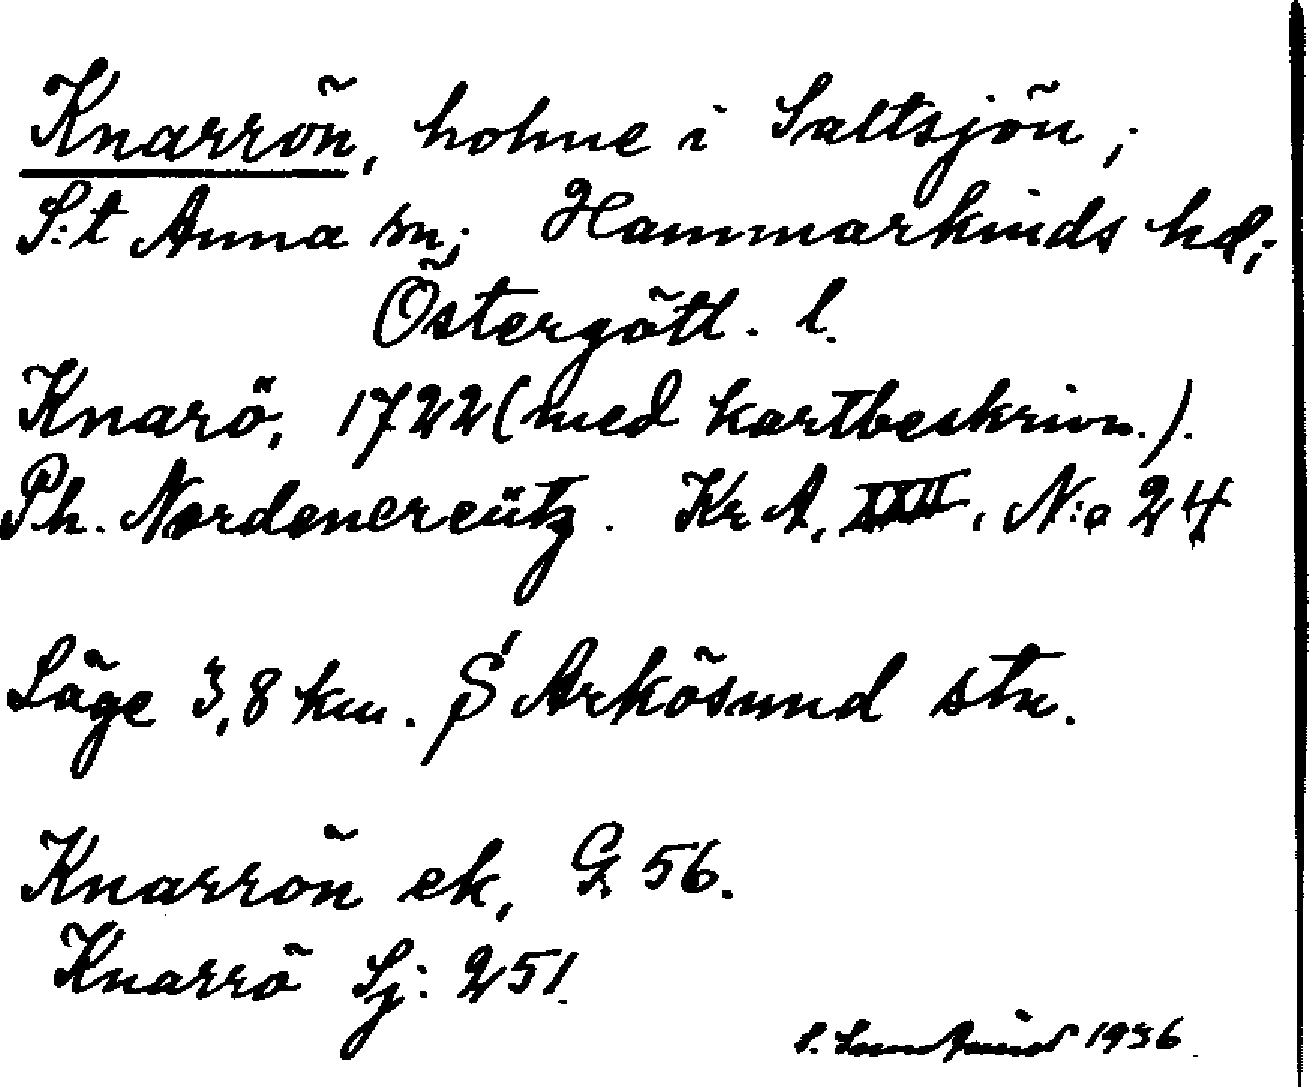 Knarrön, holme i Saltsjön;
S:t Anna sn; Hammarkinds hd;
Östergötl. l.
Knarö, 1722 (med kartbeskrivn.).
Ph. Nordencreütz. Kr A, XXII, N:o 24
Läge 3,8 km. S Arkösund stn.
Knarrön ek, G 56.
Knarrö Sj: 251.
S. 1936.